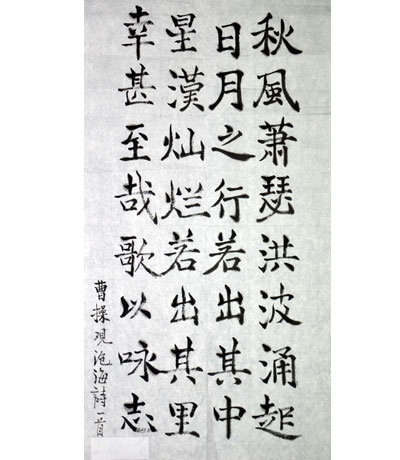 秋風萧瑟洪波涌起
日月之行若出其中
星漢灿烂若出其里
幸甚至哉歌以咏志
曹操观沧海詩一首